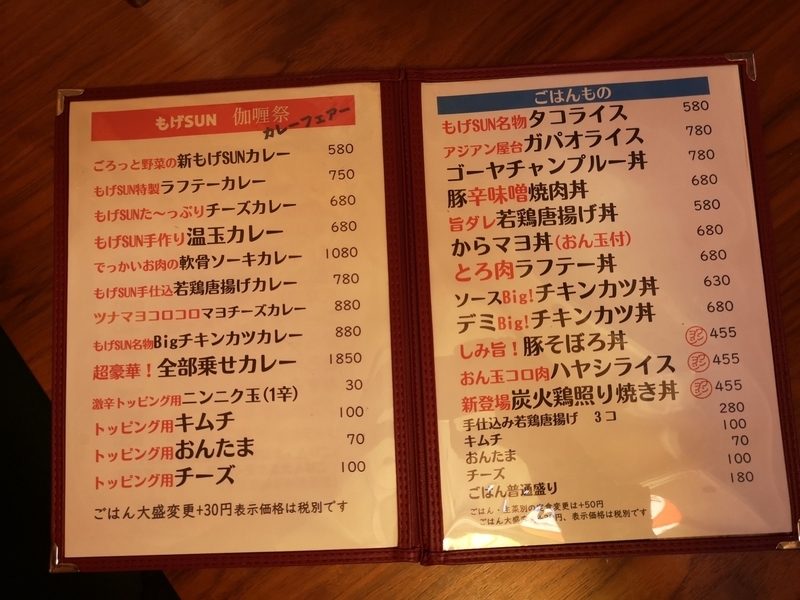 もげSUN 伽喱祭
カレーフェアー
ごろっと野菜の新もげSUNカレー 580
もげSUN特製ラフテーカレー 750
もげSUNた〜っぷりチーズカレー 680
もげSUN手作り温玉カレー 680
でっかいお肉の軟骨ソーキカレー 1080
もげSUN手仕込若鶏唐揚げカレー 780
ツナマヨコロコロマヨチーズカレー 880
もげSUN名物Bigチキンカツカレー 880
超豪華！全部乗せカレー 1850
激辛トッピング用ニンニク玉(1辛) 30
トッピング用キムチ 100
トッピング用おんたま 70
トッピング用チーズ 100
ごはん大盛変更+30円表示価格は税別です
ごはんもの
もげSUN名物タコライス 580
アジアン屋台ガパオライス 780
ゴーヤチャンプルー丼 780
豚辛味噌焼肉丼 680
旨ダレ若鶏唐揚げ丼 580
からマヨ丼(おん玉付) 680
とろ肉ラフテー丼 680
ソースBig!チキンカツ丼 630
デミBig!チキンカツ丼 680
しみ旨！豚そぼろ丼 455
おん玉コロ肉ハヤシライス 455
新登場炭火鶏照り焼き丼 455
手仕込み若鶏唐揚げ 3コ 280
キムチ 100
おんたま 70
チーズ 100
ごはん普通盛り 180
ごはん・主菜別の定食変更は+50円
ごはん大盛 円、表示価格は税別です